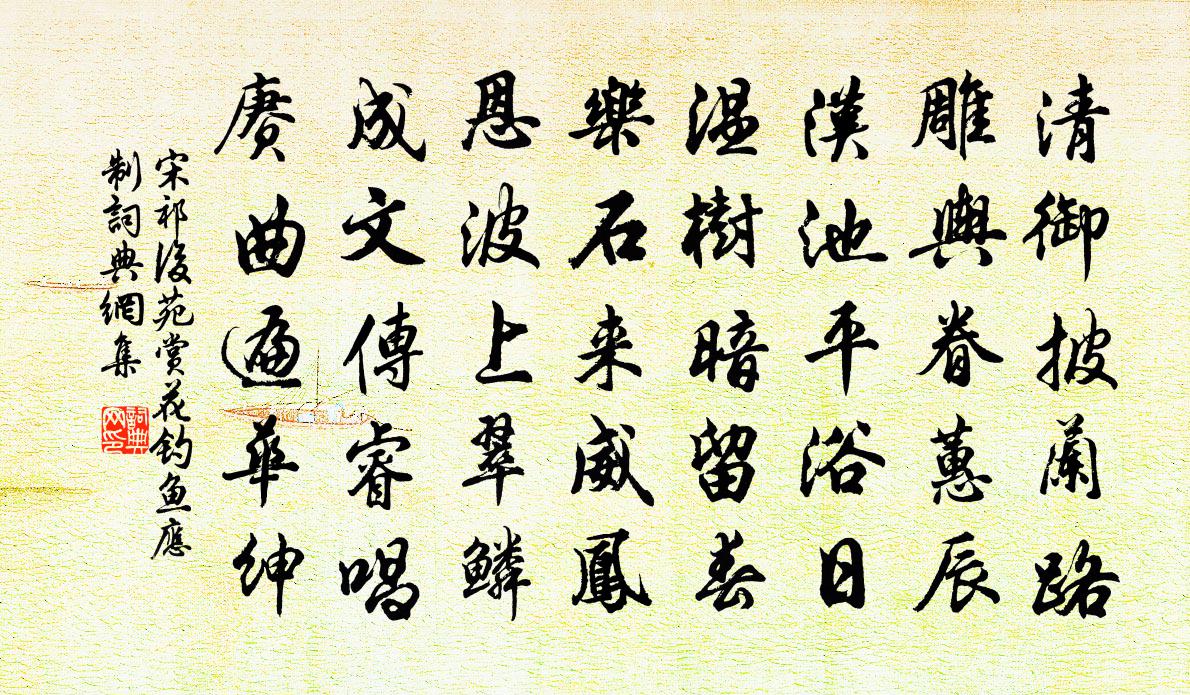 清御披蘭路
雕輿眷蕙辰
漢池平浴日
温樹暗留春
樂石来威鳳
恩波上翠鱗
成文傳睿唱
賡曲遍華紳
宋祁後苑賞花釣魚應
制詞典網集
詞典
网印